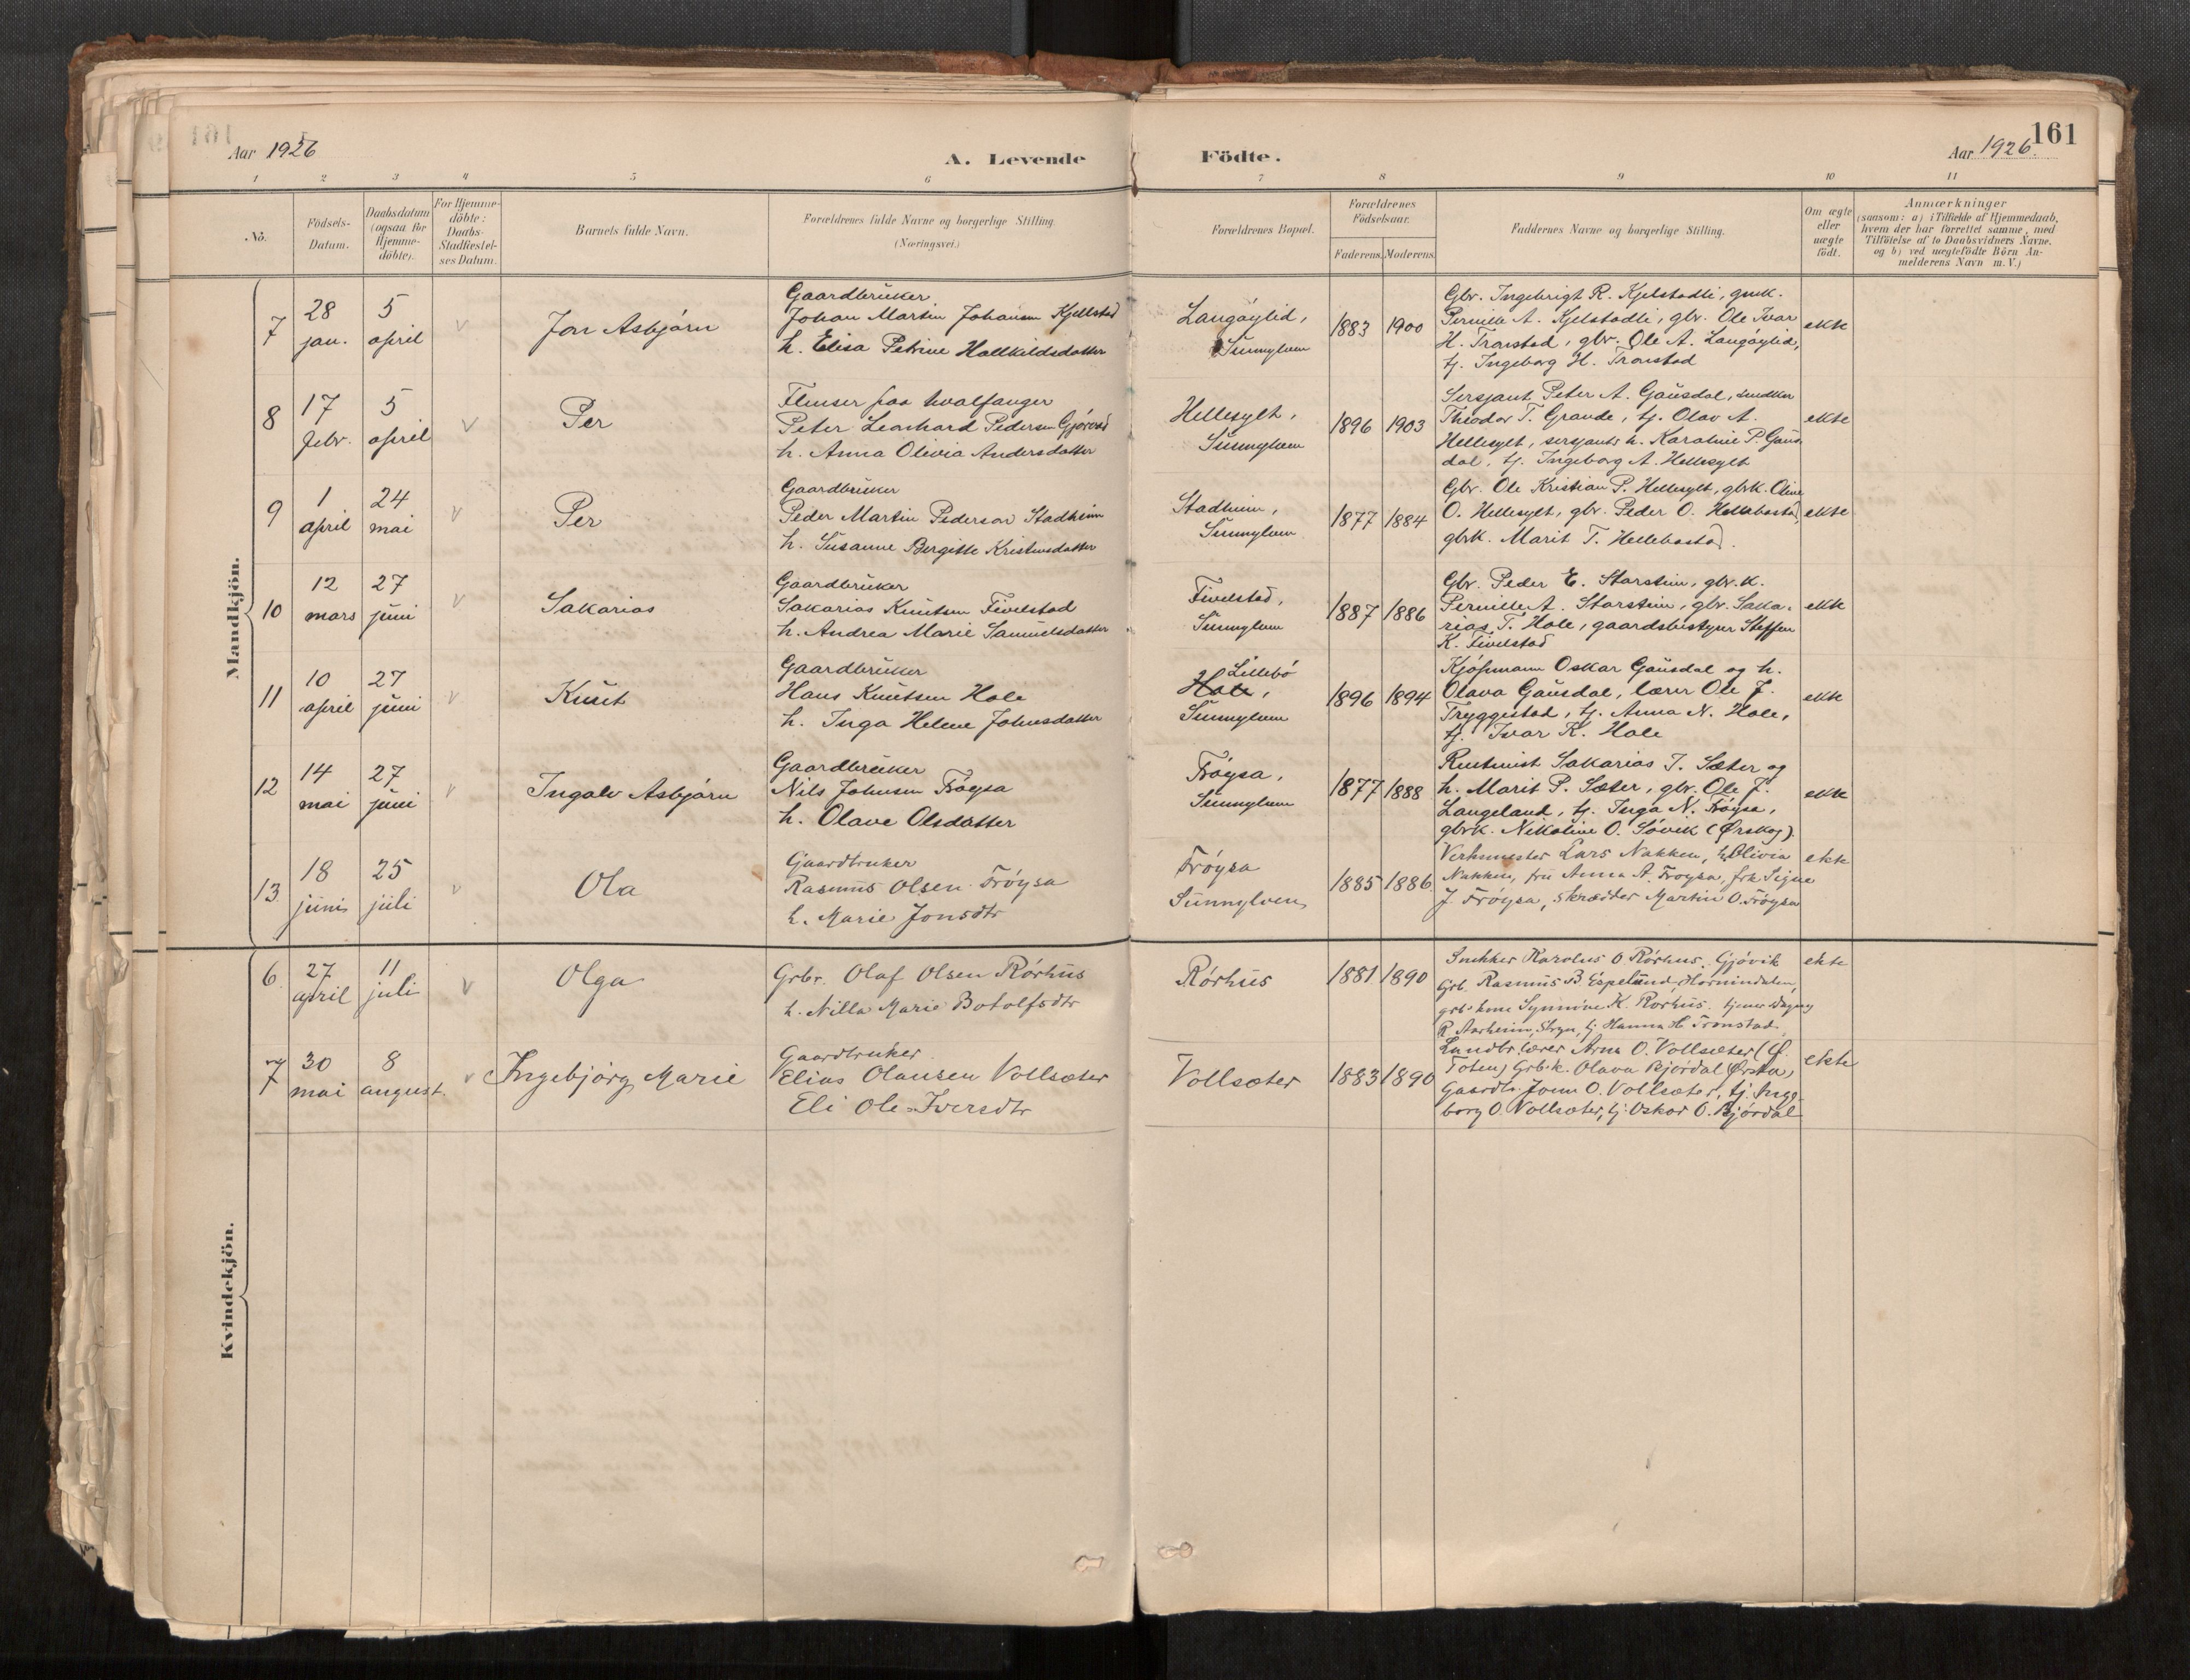 161
Aar 1926
A. Levende Födte.
Aar 1926.
1 2 3 4 5 6 7 8 9 10 11
No.
Födsels-
Datum.
Daabsdatum
(ogsaa for
Hjemme-
döbte).
For Hjemme-
döbte:
Daabs-
Stadfæstel-
ses Datum.
Barnets fulde Navn.
Forældrenes fulde Navne og borgerlige Stilling.
(Næringsvei.)
Forældrenes Bopæl.
Forældrenes
Födselsaar.
Faderens. Moderens.
Faddernes Navne og borgerlige Stilling.
Om ægte
eller
uægte
födt.
Anmærkninger
(saasom: a) i Tilfælde af Hjemmedaab,
hvem der har forrettet samme, med
Tilföielse af to Daabsvidners Navne.
og b) ved uægtefödte Börn An-
melderens Navn m. V.)
Mandkjön.
7
28
jan.
5
april
v
Jon Asbjørn
Gaardbruker
Johan Martin Johansen Kjellstad
h. Elisa Petrine Hallkildsdatter
Langøylid,
Sunnylven
1883 1900
Gbr. Ingebrigt R. Kjelstadli, gmk.
Pernille A. Kjelstadli, gbr. Ole Ivar
H. Tronstad, gbr. Ole A. Langøylid,
tj. Ingeborg H. Tronstad
ekte
8
17
febr.
5
april
v
Per
Flenser paa hvalfanger
Peter Leonhard Pedersen Gjørvad
h. Anna Olivia Andersdatter
Hellesylt,
Sunnylven
1896 1903
Sersjant Peter A. Gausdal, snekker
Theodor T. Grande, tj. Olav A.
Hellesylt, sersjants h. Karoline P. Gaus
dal, tj. Ingeborg A. Hellesylt
ekte
9
1
april
24
mai
v
Per
Gaardbruker
Peder Martin Pederson Stadheim
h. Susanne Bergitte Kristensdatter
Stadheim,
Sunnylven
1877 1884
Gbr. Ole Kristian P. Hellesylt, gbrk. Oline
O. Hellesylt, gbr. Peder O. Hellebostad,
gbrk. Marit T. Hellebostad.
ekte
10
12
mars
27
juni
v
Sakarias
Gaardbruker
Sakarias Knutsen Fivelstad
h. Andrea Marie Samuelsdatter
Fivelstad,
Sunnylven
1887 1886
Gbr. Peder E. Storstein, gbr.k.
Pernille A. Storstein, gbr. Saka-
rias T. Hole, gaardsbestyrer Steffen
K. Fivelstad
ekte
11
10
april
27
juni
v
Knut
Gaardbruker
Hans Knutsen Hole
h. Inga Helene Johnsdatter
Lillebø
Hole,
Sunnylven
1896 1894
Kjøpmann Oskar Gausdal og h.
Olava Gausdal, lærer Ole J.
Tryggestad, tj. Anna N. Hole,
tj. Ivar K. Hole
ekte
12
14
mai
27
juni
v
Ingolv Asbjørn
Gaardbruker
Nils Johnsen Frøysa
h. Olave Olsdatter
Frøysa,
Sunnylven
1877 1888
Rentenist Sakarias I. Sæter og
h. Marit P. Sæter, gbr. Ole J.
Langeland, tj. Inga N. Frøysa,
gbrk. Nikoline O. Søvik (Ørskog).
ekte
13
18
juni
25
juli
v
Ola
Gaardbruker
Rasmus Olsen Frøysa
h. Marie Jonsdtr
Frøysa
Sunnylven
1885 1886
Verksmester Lars Nakken, h. Olivia
Nakken, fru Anna A. Frøysa, frk Signe
J. Frøysa, Skrædder Martin O. Frøysa
ekte
Kvindekjön.
6
27
april
11
juli
v
Olga
Grbr. Olaf Olsen Rørhus
h. Nilla Marie Botolfsdtr
Rørhus
1881 1890
Snekker Karolus O Rørhus. Gjøvik
Grb. Rasmus B. Espelund, Hornindalen,
grb. kone Synnøve K. Rørhus. tjener Dagny
R. Aarheim, Stryn, tj. Hanna H Tronstad.
ekte
7
30
mai
8
august.
v
Ingebjørg Marie
Gaardbruker
Elias Olausen Vollsæter
Eli Ole-Iversdtr
Vollsæter
1883 1890
Landbr. lærer Arne O. Vollsæter (Ø.
Toten) Grb.k. Olava Bjørdal Ørsta,
Gaardbr. Jonn O. Vollsæter, tj. Inge-
borg O. Vollsæter, tj. Oskar O. Bjørdal
ekte